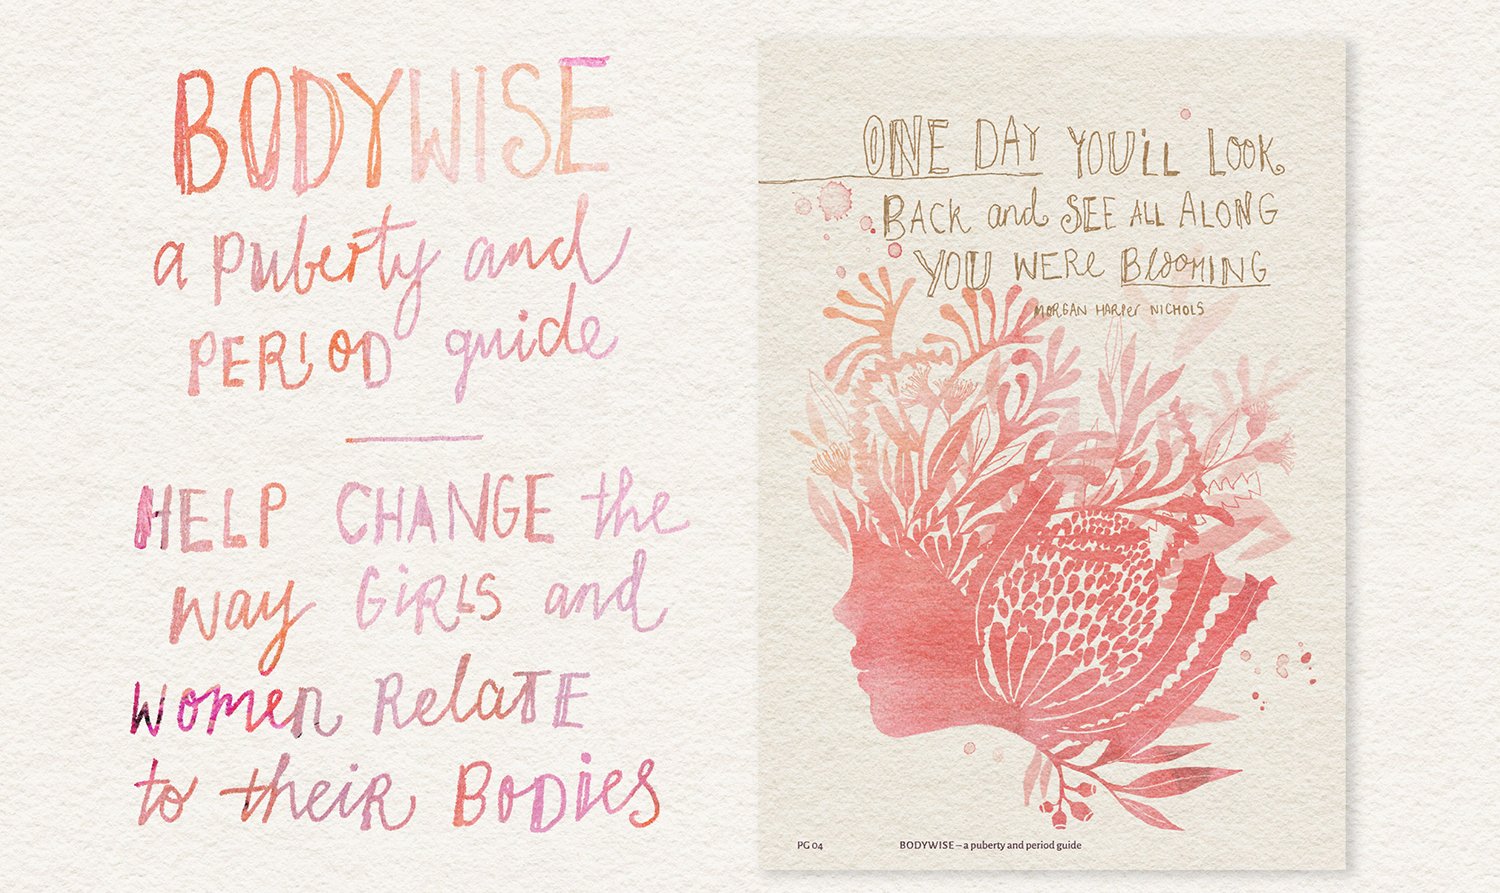 BODYWISE
a puberty and
PERIOD guide
HELP CHANGE the
way GiRLS and
women RelaTE
to their BODies
ONE DAY YOU'LL LOOK
BACK and SEE ALL ALONG
YOU WERE BLOOMING
MORGAN HARPER NICHOLS
PG 04
BODYWISE – a puberty and period guide